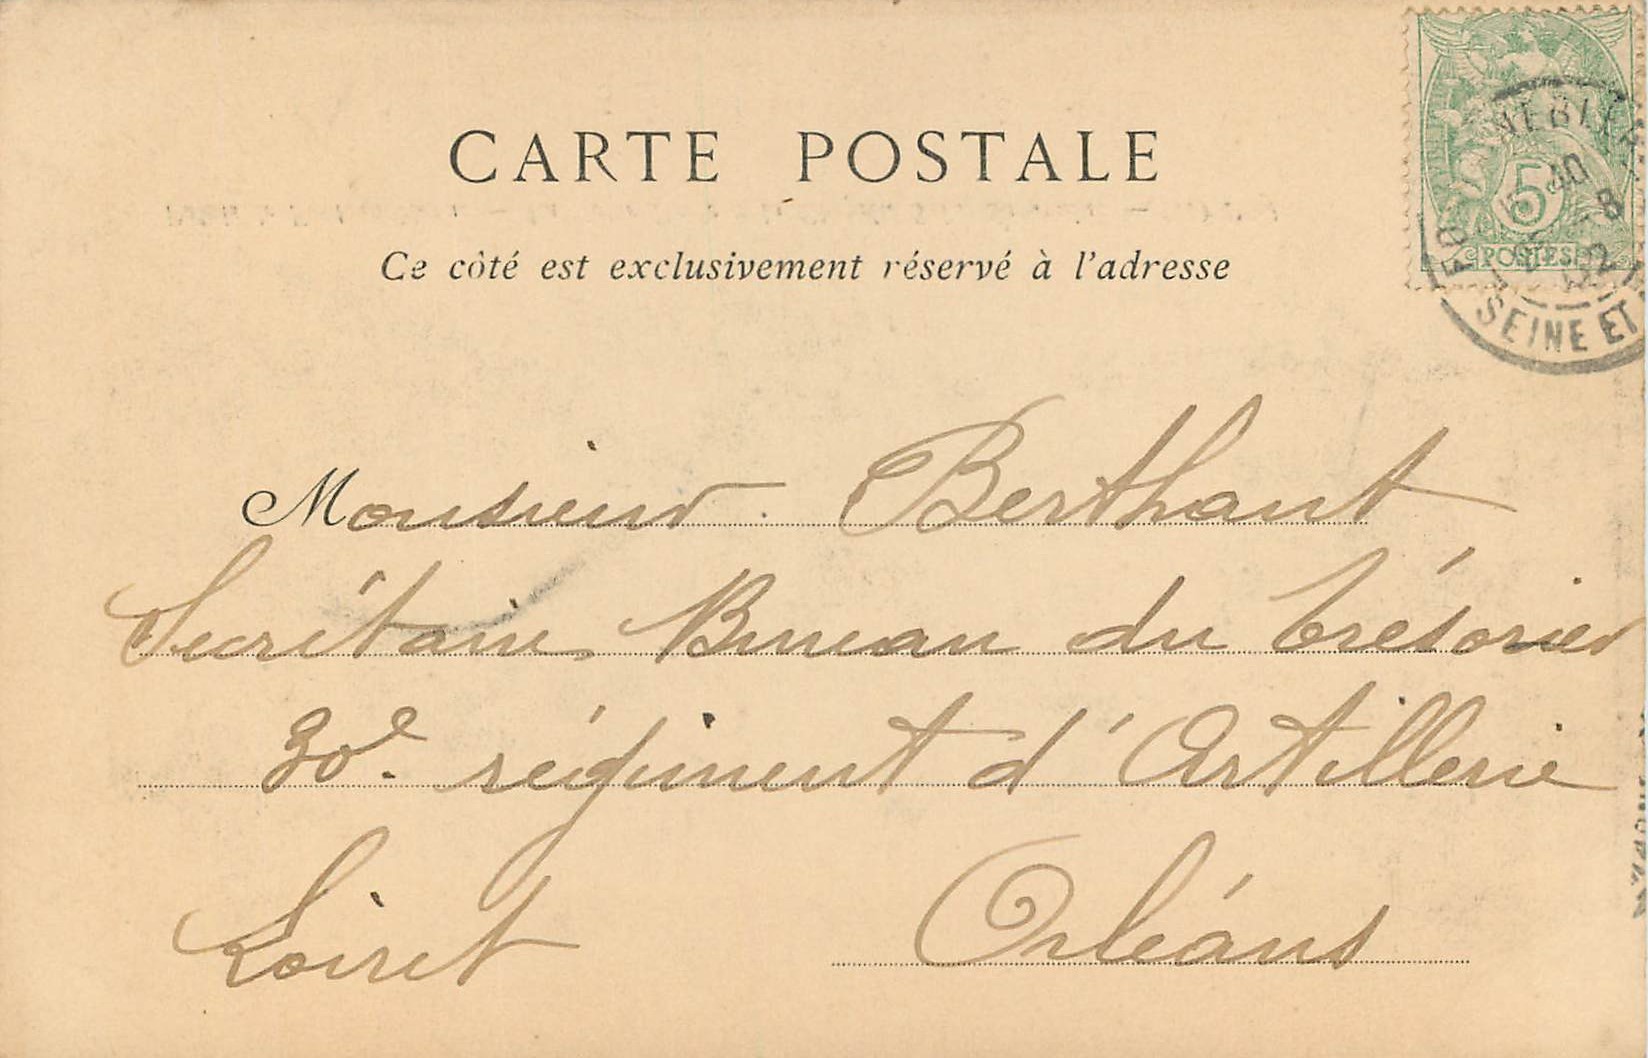 CARTE POSTALE
Ce côté est exclusivement réservé à l'adresse
5
POSTES
SEINE ET
Monsieur Berthaut
Secrétaire Bureau du trésorier
30e. régiment d'Artillerie
Loiret Orléans